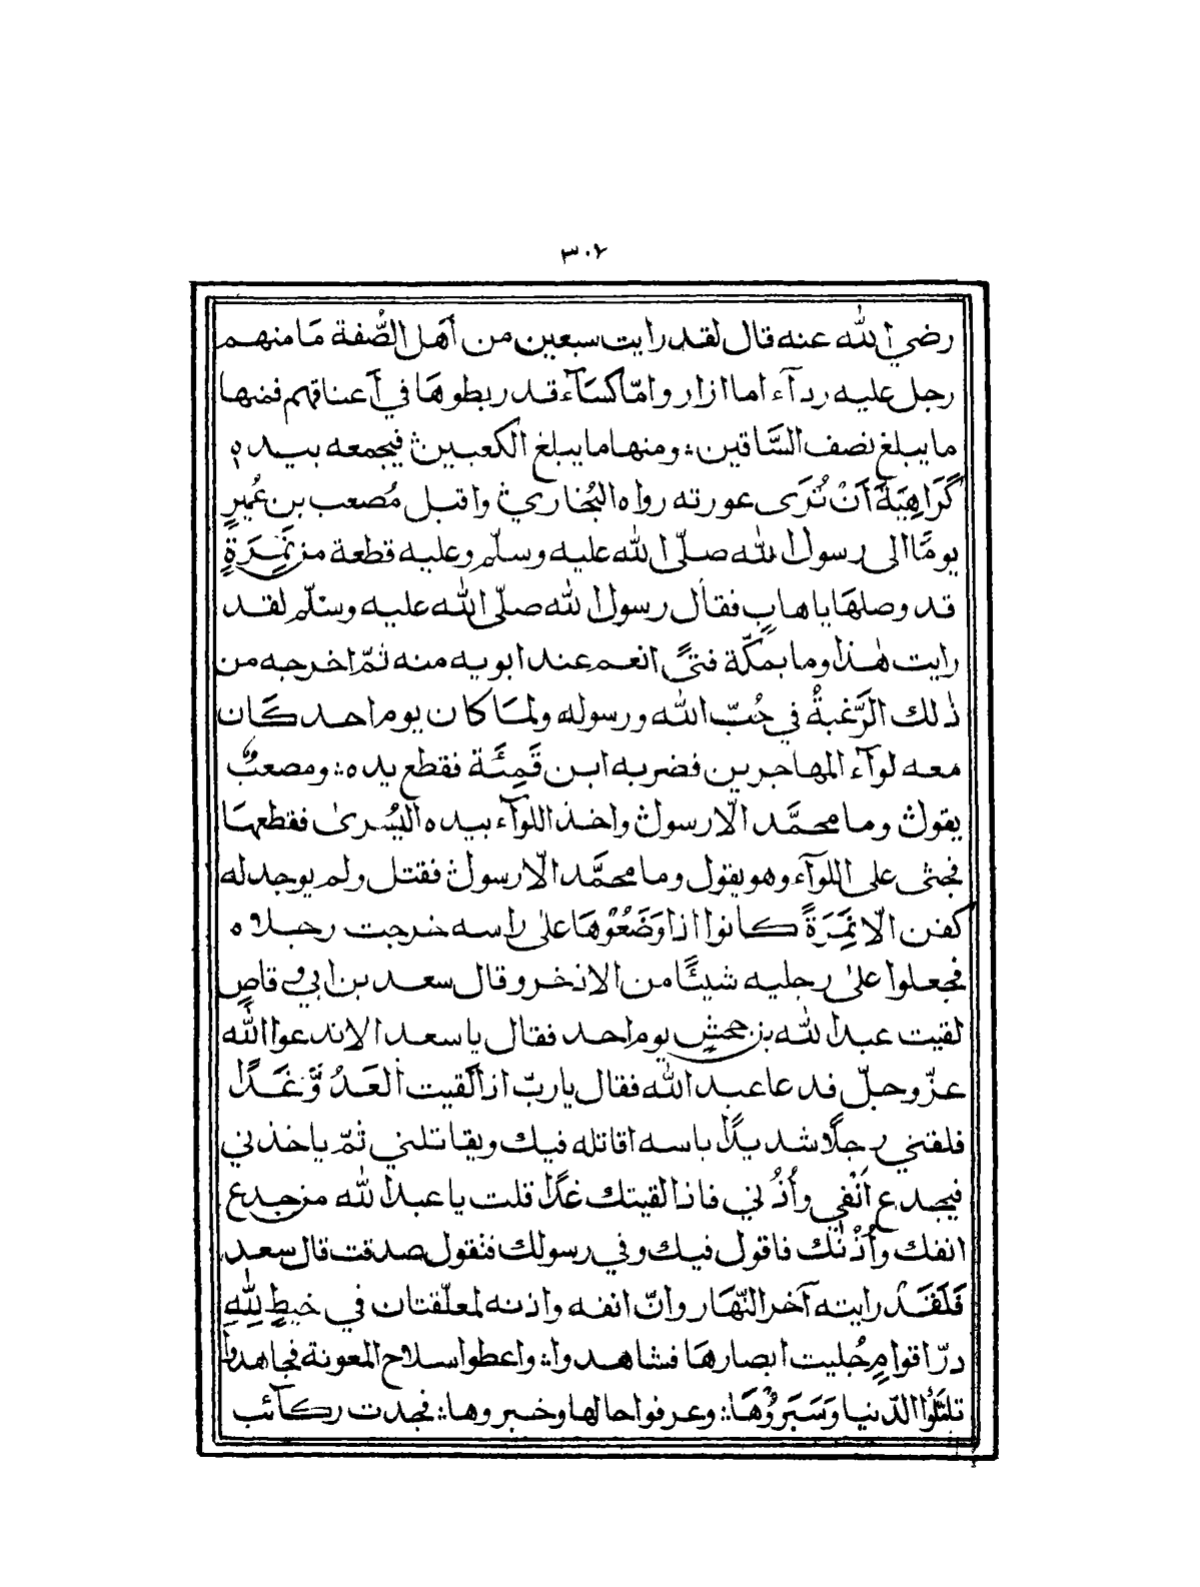 ٣٠٦
رضي الله عنه قال لقد رايت سبعين من أهل الصُّفة مَا منهم
رجل عليه ردآء اما ازار وامّا كسَآء قد ربطوهَا في أعناقهم فمنها
ما يبلغ نصف السَّاقين ؞ ومنها ما يبلغ الكعبين ؞ فيجمعه بيده
كَرَاهِيَةَ أَنْ تُرَى عورته رواه البُخاري ؞ واقبل مُصعب بن عُمَيرٍ
يومًا الى رسول الله صلّى الله عليه وسلّم وعليه قطعة من نَمِرَةٍ
قد وصلهَا باهابٍ فقال رسول الله صلّى الله عليه وسلّم لقد
رايت هٰذا وما بمكّة فتىً انعم عند ابويه منه ثمّ اخرجه من
ذٰلك الرَّغبةُ في حُبّ الله ورسوله ولمَا كان يوم احد كَان
معه لوآء المهاجرين فضربه ابن قَمِئَة فقطع يده ؞ ومصعبٌ
يقول ؞ وما محمَّد الّا رسول ؞ واخذ اللوآء بيده اليُسرىٰ فقطعهَا
فجثى على اللوآء وهو يقول وما محمَّد الّا رسول ؞ فقتل ولم يوجد له
كفن الّا نَمِرَةً كانوا اذا وَضَعُوْهَا علىٰ راسه خرجت رجلاه
فجعلوا علىٰ رجليه شيئًا من الاذخر وقال سعد بن ابي وقاصٍ
لقيت عبد الله بن جحشٍ يوم احد فقال يا سعد الا ندعوا الله
عزّ وجلّ فدعا عبد الله فقال يا ربّ اذا لقيت العَدُوَّ غَدًا
فلقني رجلًا شديدًا باسه اقاتله فيك ويقاتلني ثمّ ياخذني
فيجدع أَنْفي وأُذُني فاذا لقيتك غدًا قلت يا عبد الله من جدع
انفك وأُذْنَك فاقول فيك وفي رسولك فتقول صدقت قال سعد
فَلَقَدْ رايته آخر النّهَار وانّ انفه واذنه لمعلّقتان في خيطٍ لِلّٰهِ
درّ اقوامٍ جُليت ابصارهَا فشاهدوا ؞ واعطوا سلاح المعونة فجاهدوا
تامَّلُوا الدّنيا وَسَبَرُوْهَا ؞ وعرفوا حالها وخبروها ؞ فجدت ركآئب